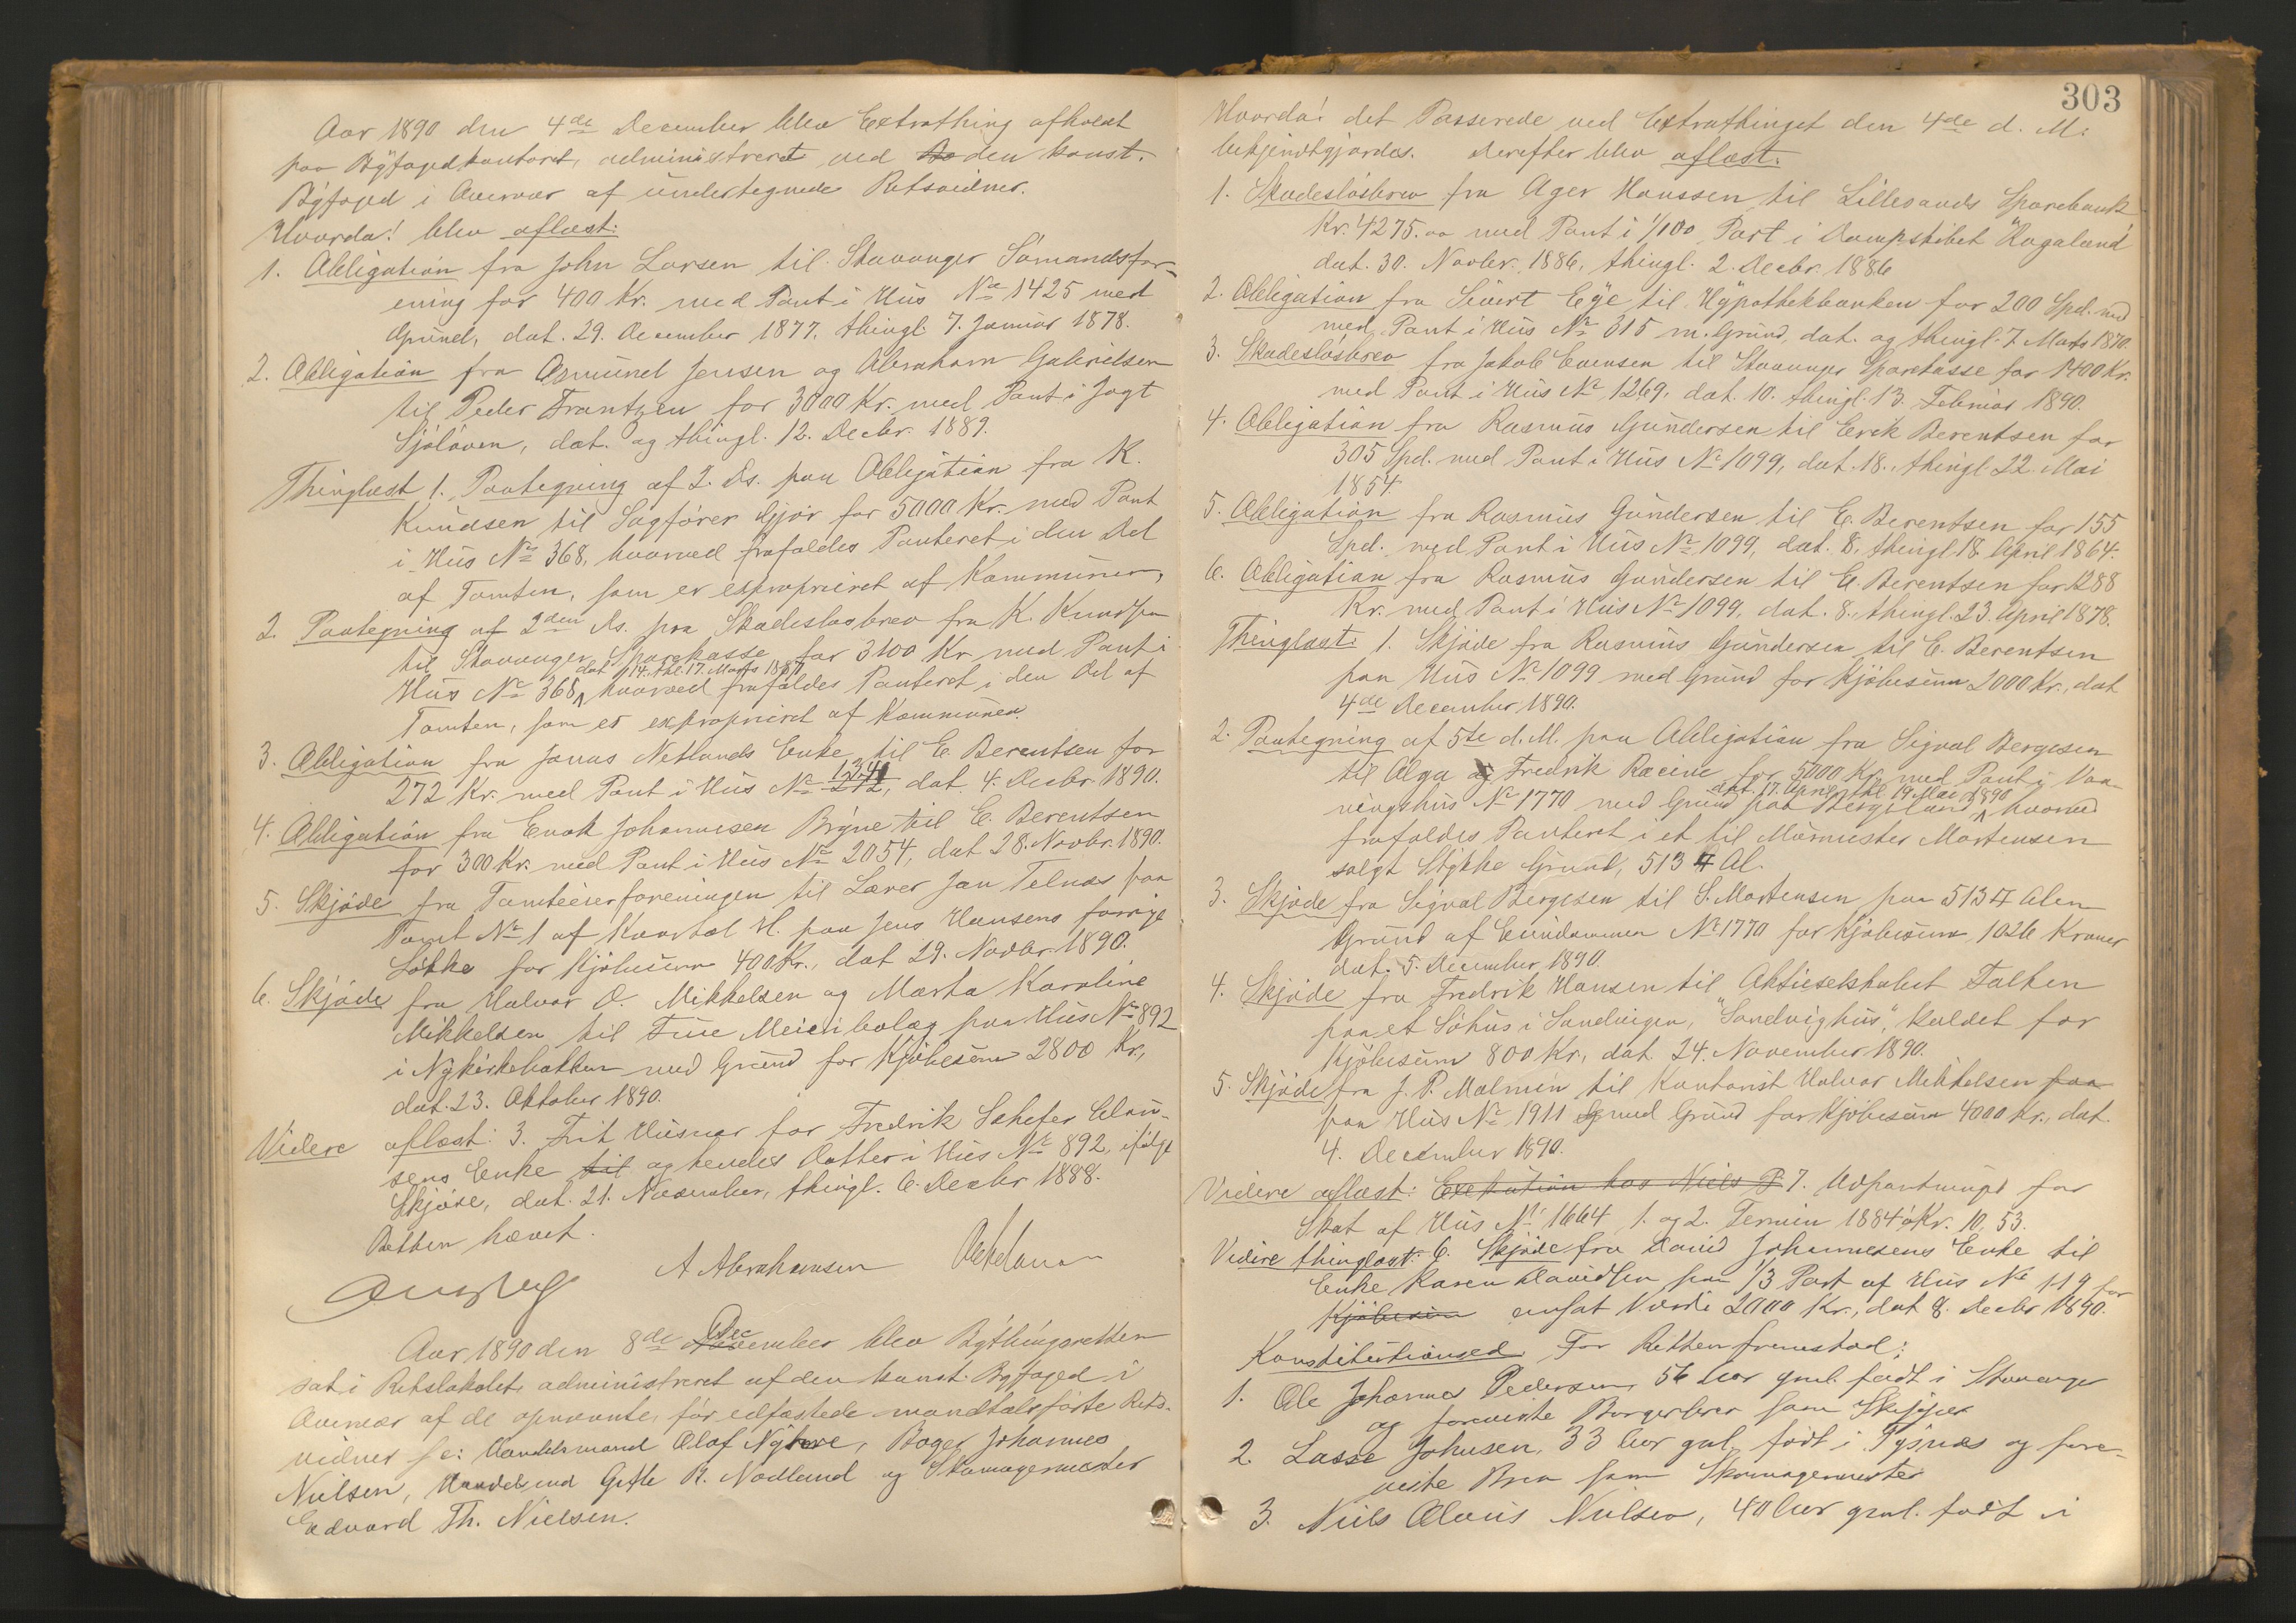 Aar 1890 den 4de December blev Extrathing afholdt
paa Byfogedkontoret, administreret ved den konst.
Byfoged i Overvær af undertegnede Retsvidner.
Hvorda! blev aflæst:
1. Obligation fra John Larsen til Stavanger Sömandsfor-
ening for 400 Kr. med Pant i Hus No 1425 med
Grund, dat. 29. December 1877, thingl. 7. Januar 1878.
2. Obligation fra Asmund Jensen og Abraham Gabrielsen
til Peder Frantzen for 3000 Kr. med Pant i Jagt
Sjöloven, dat. og thingl. 12. Decbr. 1889.
Thinglæst 1. Paategning af 2. ds. paa Obligation fra K.
Knudsen til Sagförer Gjör for 5000 Kr. med Pant
i Hus No 368, hvorved frafaldes Panteret i den Del
af Tomten, som er exproprieret af Kommunen,
2. Paategning af 2den ds. paa Skadeslösbrev fra K. Knudsen
til Stavanger Sparekasse for 3100 Kr. med Pant i
dat 14. thl. 17. Marts 1887
Hus No 368, hvorved frafaldes Panteret i den Del af
Tomten, som er exproprieret af Kommunen.
3. Obligation fra Jonas Netlands Enke til E. Berentsen for
1341
272 Kr. med Pant i Hus No 212, dat. 4. Decbr. 1890.
4. Obligation fra Enok Johannesen Bryne til E. Berentsen
for 300 Kr. med Pant i Hus No 2054, dat 28. Novbr. 1890.
5. Skjöde fra Tomteeierforeningen til Lærer Jan Telnæs paa
Tomt No 1 af Kvartal H. paa Jens Hansens forrige
Lökke for Kjöbesum 400 Kr., dat 29. Novbr. 1890.
6. Skjöde fra Halvor O. Mikkelsen og Marta Karoline
Mikkelsen til Time Meieribolag paa Hus No 892
i Nykirkebakken med Grund for Kjöbesum 2800 Kr.,
dat. 23. Oktober 1890.
Videre aflæst: 3. Frit Husvær for Fredrik Schefer Clau-
sens Enke til og hendes Datter i Hus No 892, ifölge
Skjöde, dat. 21. November, thingl. 6. Decbr 1888.
Retten hævet.
A Abrahamsen
Aar 1890 den 8de Dec
November blev Bythingsretten
sat i Retslokalet, administreret af den konst. Byfoged i
Overvær af de opnævnte, för edfæstede mandtalsförte Rets-
vidner se: Handelsmand Olaf Nyhre, Bager Johannes
Nielsen, Handelsmd Gitle R. Nodland og Skomagermester
Edvard Th. Nielsen.
303
Hvorda! det Passerede ved Extrathinget den 4de d. M.
bekjendtgjordes. Derefter blev aflæst:
1. Skadeslösbrev fra Ager Hanssen til Lillesands Sparebank
Kr. 4275.00 med Pant i 1/100 Part i Dampskibet "Rogaland"
dat. 30. Novbr. 1886, thingl. 2. Decbr. 1886
2. Obligation fra Sivert Eye til Hypothekbanken for 200 Spd. med
med Pant i Hus No 315 m. Grund, dat. og thingl. 7. Marts 1870.
3. Skadeslösbrev fra Jakob Evensen til Stavanger Sparekasse for 1400 Kr.
med Pant i Hus No 1269, dat. 10. thingl. 13. Februar 1890.
4. Obligation fra Rasmus Gundersen til Erek Berentsen for
305 Spd. med Pant i Hus No 1099, dat. 18., thingl. 22. Mai
1854.
5. Obligation fra Rasmus Gundersen til E. Berentsen for 155
Spd. med Pant i Hus No 1099, dat. 8., thingl. 18 April 1864.
6. Obligation fra Rasmus Gundersen til E. Berentsen for 1288
Kr. med Pant i Hus No 1099, dat. 8., thingl. 23. April 1878.
Thinglæst: 1. Skjöde fra Rasmus Gundersen til E. Berentsen
paa Hus No 1099 med Grund for Kjöbesum 2000 Kr., dat
4de December 1890.
2. Paategning af 5te d. M. paa Obligation fra Sigval Bergesen
til Olga og Fredrik Racine for 5000 Kr. med Pant i Vaa-
dat. 17. April thl. 19. Mai 1890
ningshus No 1770 med Grund paa Bergeland, hvorved
frafaldes Panteret i et til Murmester Mortensen
solgt Stykke Grund, 513 □ Al.
3. Skjöde fra Sigval Bergesen til S. Mortensen paa 513 □ Alen
Grund af Eiendommen No 1770 for Kjöbesum 1026 Kroner
dat. 5. December 1890.
4. Skjöde fra Fredrik Hansen til Aktieselskabet Falken
paa et Söhus i Sandvigen, "Sandvighus", kaldet for
Kjöbesum 800 Kr., dat. 24. November 1890.
5. Skjöde fra J. P. Malmin til Kontorist Halvor Mikkelsen paa
paa Hus No 1911 med Grund for Kjöbesum 4000 Kr., dat.
4. December 1890.
Videre aflæst: Exekution hos Niels P. 7. Udpantning for
Skat af Hus No 1664, 1. og 2. Termin 1884 á Kr. 10,53.
Videre thinglæst: 6. Skjöde fra David Johannesens Enke til
Enke Karen Davidsen paa 1/3 Part af Hus No 119 for
Kjöbesum ansat Værdi 2000 Kr., dat 8. Decbr 1890.
Konstitutionsed. For Retten fremstod:
1. Ole Johannes Pedersen, 56 Aar gml. födt i Stavanger
og foreviste Borgerbrev som Skipper
2. Lasse Johnsen, 33 Aar gml. födt i Tysnæs og fore-
viste Brev som Skomagermester
3. Niels Olaus Nielsen, 40 Aar gml. födt i